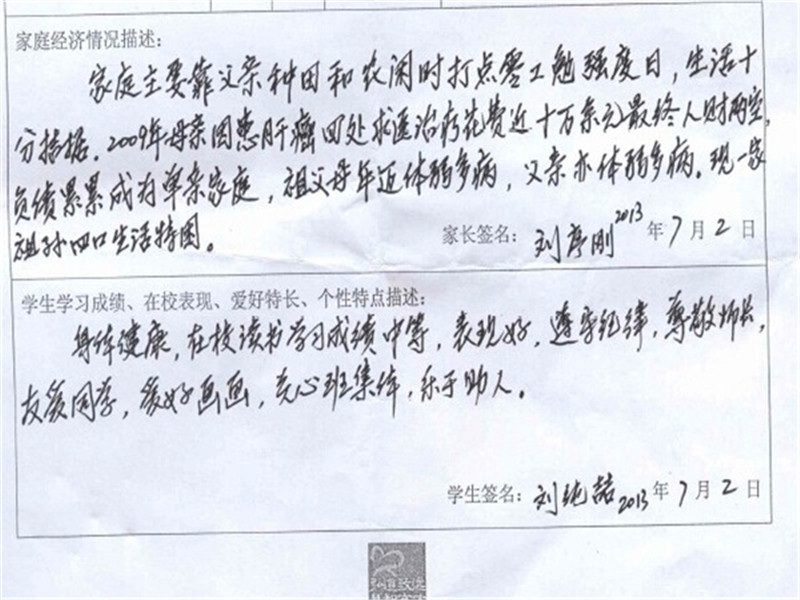 家庭经济情况描述:
家庭主要靠父亲种田和农闲时打点零工勉强度日,生活十
分拮据.2009年母亲因患肝癌四处求医治疗花费近十万余元最终人财两空,
负债累累成为单亲家庭,祖父母年迈体弱多病,父亲亦体弱多病.现一家
祖孙四口生活特困。
家长签名: 刘序刚 2013 年 7 月 2 日
学生学习成绩、在校表现、爱好特长、个性特点描述:
身体健康,在校读书学习成绩中等,表现好,遵守纪律,尊敬师长,
友爱同学,爱好画画,关心班集体,乐于助人。
学生签名: 刘纯喆 2013 年 7 月 2 日